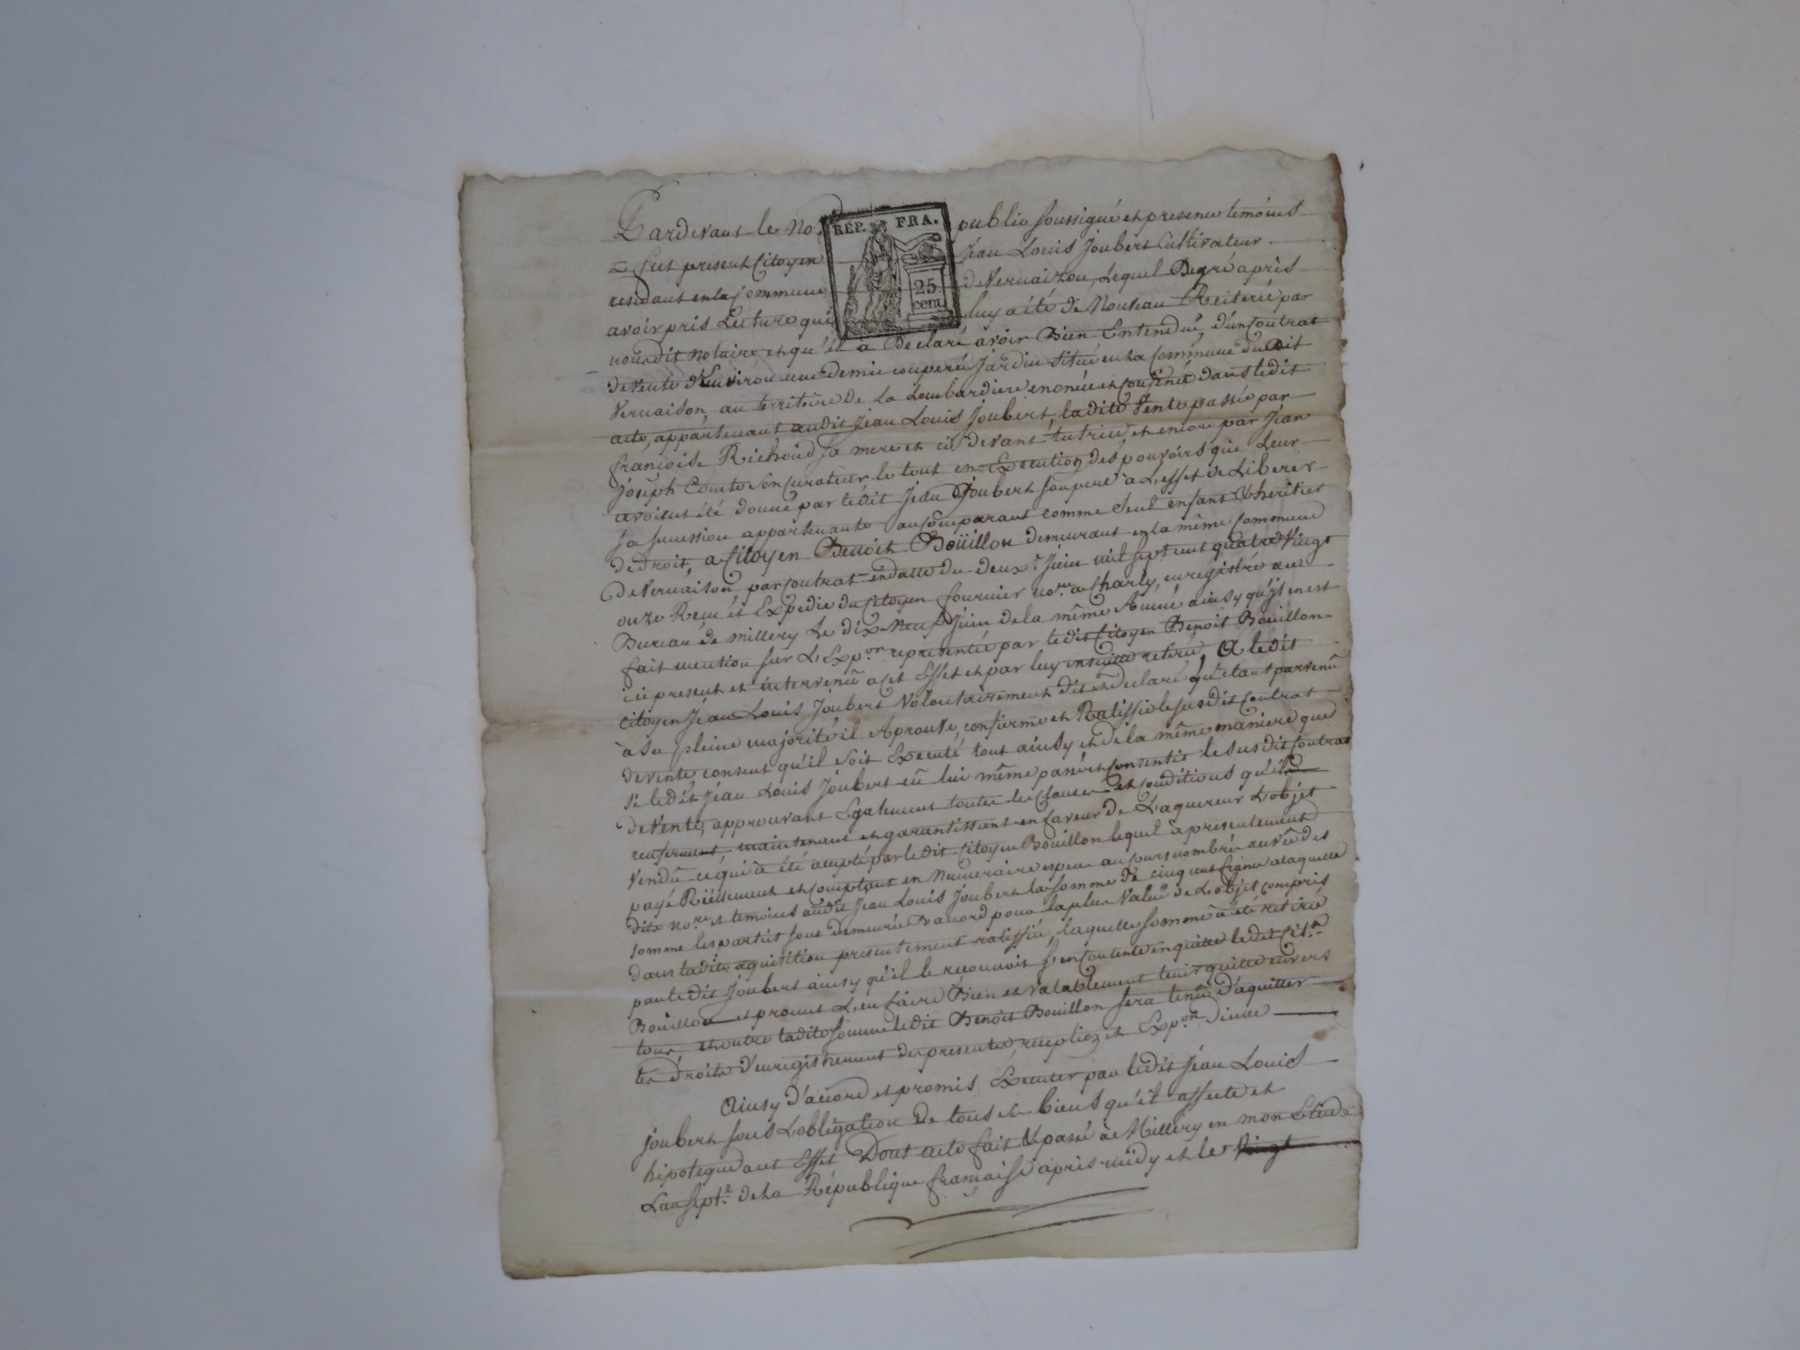 Pardevant le No.re public soussigné et presence temoins
RÉP. FRA.
25 cent
fut present Citoyen Jéau Louis Joubert Cultivateur
residant en la Commune de Vernaizon, Lequel De gré après
avoir pris Lecture qui luy a été de Nouveau Reiteréé par
nousdit notaire et qu'il à Declaré avoir Bien Entendüe, d'un Contrat
de vente d'Environ une demie couperéé Jardin situé en la Commune dudit
Vernaison, au territoire de La Lombardiere énoncée et confinée dans ledit
acte, appartenant audit Jéau Louis Joubert, ladite Vente passéé par
françoise Richoud sa mere et ci devant tutrice, et encore par Jéan
Joseph Comte son curateur le tout en Execution des pouvoirs que Leur
avoient été donné par ledit Jéau Joubert son pere à L'effet de Liberer
sa sucession appartenante au comparant comme seul enfant & heritier
de droit, a Citoyen Benoit Boüillon demeurant en la même Commune
de Vernaison par Contrat endatte du deux.e Juin mil sept cent quatre Vingt
onze Recu et Expedié du Citoyen fournier no.re a Charly, enregistré au
Bureau de millery Le dix Neuf Juin de la même Année ainsy qu'il en est
fait mention sur L'Exp.on representéé par ledit Citoyen Benoit Bouillon
ici present et intervenû a cet Effet et par luy ensuitte retiréé, a ledit
Citoyen Jéau Louis Joubert Volontairement dit et declaré qu'étant parvenû
à sa pleine majorité il Aprouve, confirme et Ratiffie le susdit Contrat
de vente consent qu'il soit Executé tout ainsy et de la même maniere que
si ledit Jéau Louis Joubert eû lui même passé et consentis le susdit Contrat
de Vente, approuvant Egalement toutes les Clauses et conditions qu'il
renferment, maintenant et garantissant en faveur de L'aquereur L'objet
Vendû ce qui à été accepté par ledit Citoyen Bouillon lequel à presentement
payé Réellement et comptant en Numeraire espece au cours nombré au vûe des
dits no.re et temoins audit Jéau Louis Joubert la somme de cinquent francs a laquelle
somme les parties sont demeurée d'acord pour la plus Value de L'objet compris
dans ladite aquisition presentement ratiffiéé, laquelle somme à été retiréé
par ledit Joubert ainsy qu'il le reconnois s'en contente en quitte ledit Cit.n
Bouillon et promet L'en faire Bien et valablement tenir quitte envers
tous, et outre ladite somme ledit Benoit Bouillon sera tenû d'aquitter
les droits d'enregistrement des presentes, reception et Exp.on d'icelle
Ainsy d'acord et promis Executer par ledit Jéau Louis
Joubert sous L'obligation de tous ses biens qu'il affecte et
hipoteque a cet Effet Dont acte fait & passé à Millery en mon Etude
L'an sept.e de la République française après midy et le Vingt